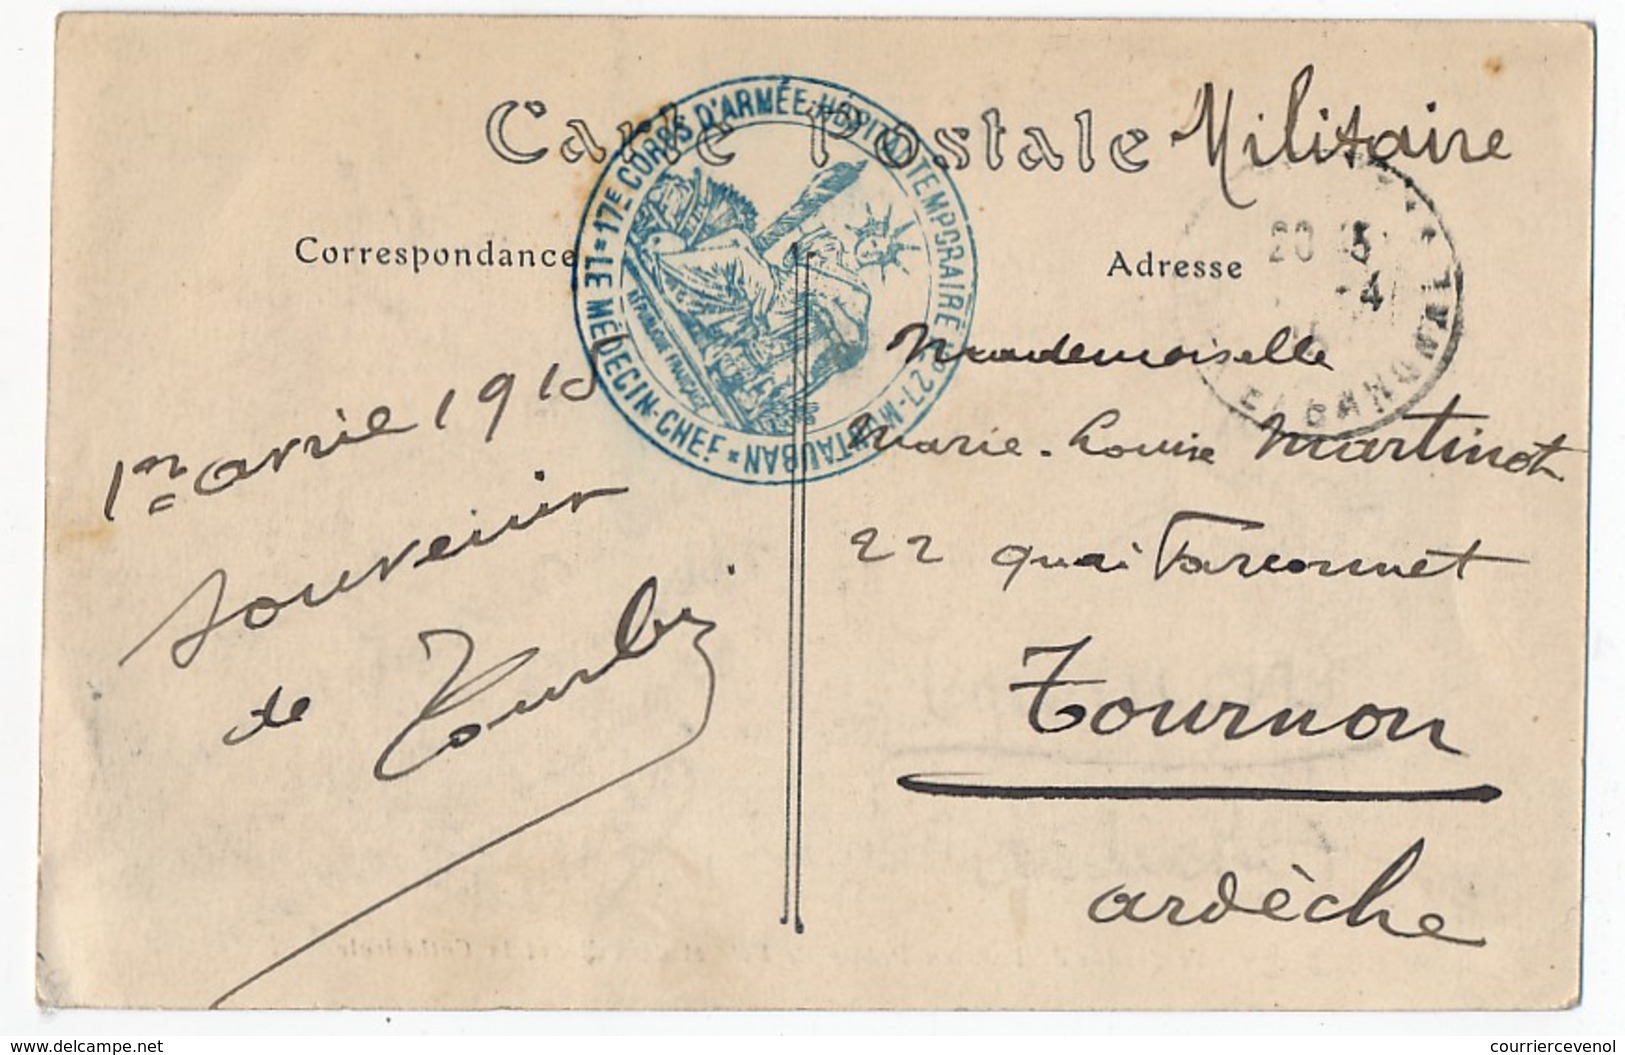 Carte Postale Militaire
17E CORPS D'ARMÉE-HÔPITAL TEMPORAIRE N° 27-MONTAUBAN
LE MÉDECIN-CHEF
RÉPUBLIQUE FRANÇAISE
Correspondance
Adresse
20
4
1er avril 1915
souvenir
de
Mademoiselle
Marie-Louise Martinot
22 quai Farconnet
Tournon
ardèche
delcampe.net
courriercevenol